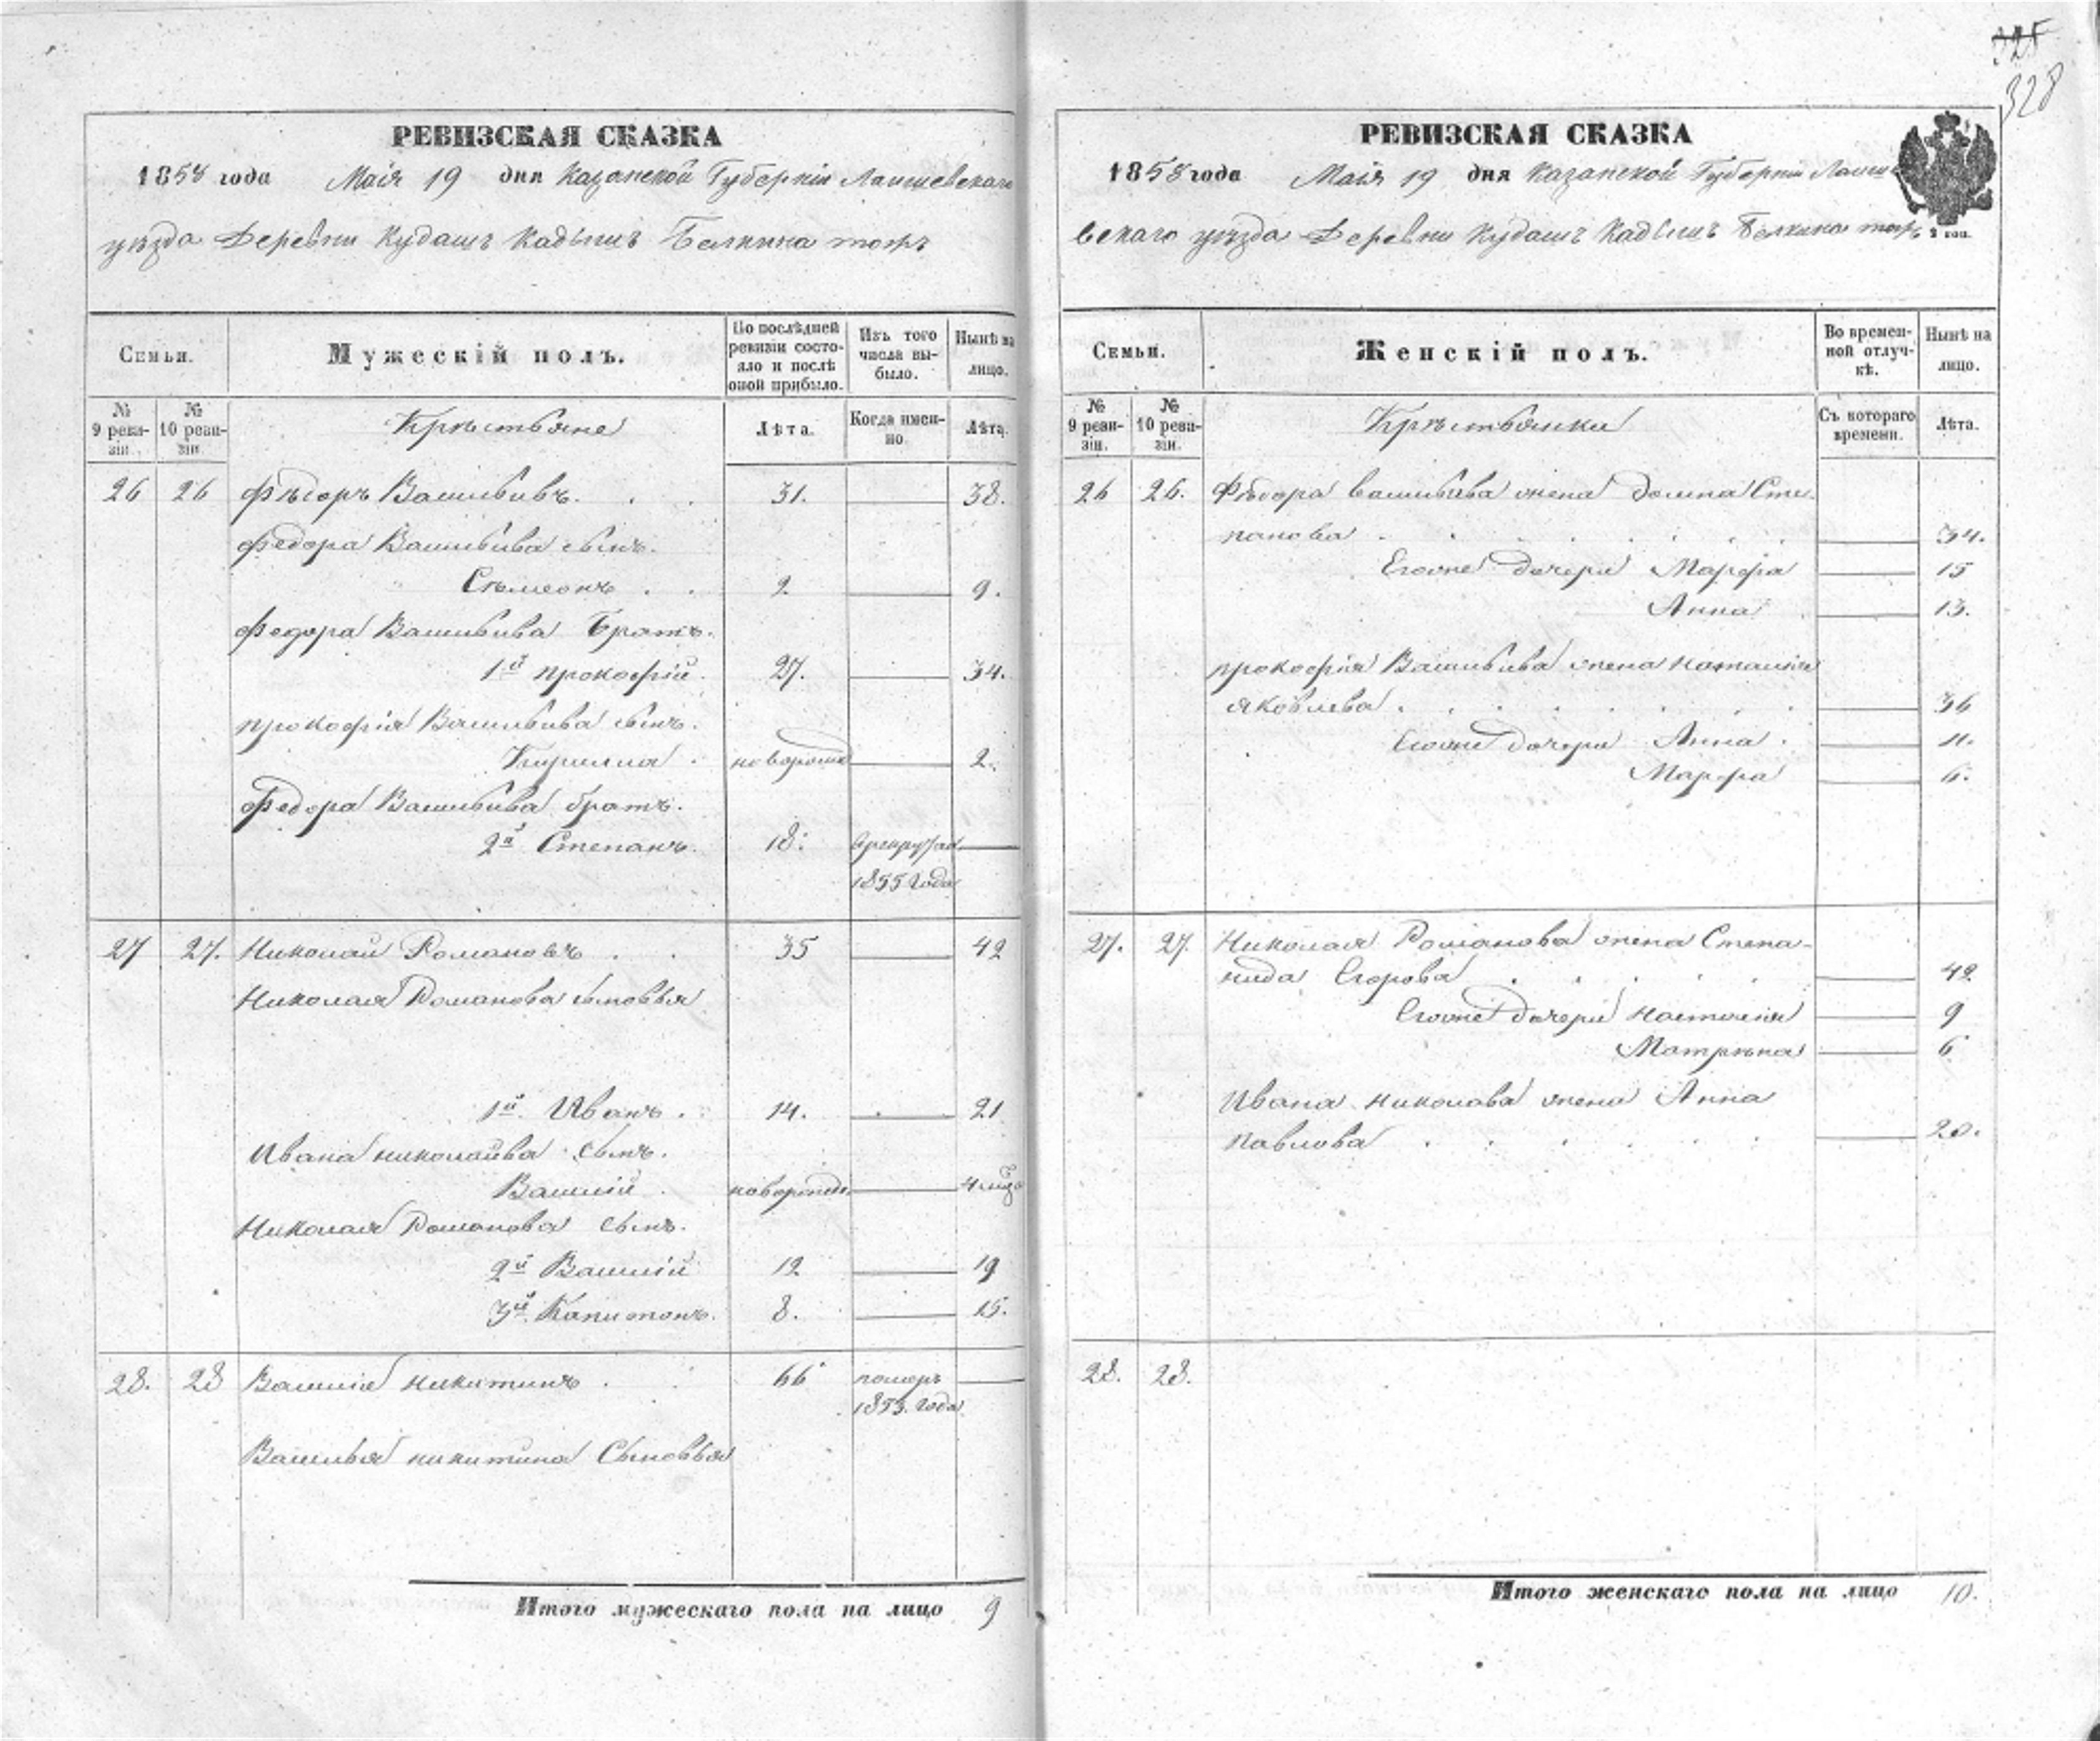 325
328
РЕВИЗСКАЯ СКАЗКА
1858 года Маія 19 дня Казанской Губерніи Лаишевскаго
уѣзда Деревни Кудашъ Кадышъ Белкина тожъ
Семьи.
Мужескій полъ.
По послѣдней ревизіи состояло и послѣ оной прибыло.
Изъ того числа выбыло.
Нынѣ на лицо.
№ 9 ревизіи.
№ 10 ревизіи.
Крѣстьяне
Лѣта.
Когда именно.
Лѣта.
26 26 Фѣдоръ Васильивъ. 31. 38.
Федора Васильива сынъ.
Сѣмеонъ 2 9.
Федора Васильива Братъ.
1й прокофій. 27. 34.
прокофія Васильива сынъ.
Кирилла новорожд 2.
Федора Васильива братъ.
2й Степанъ. 18. врекрут
1855 года
27 27. Николай Романовъ 35 42
Николая Романова сыновья
1й Иванъ. 14. 21
Ивана николаива сынъ.
Василій новорожде.
Николая Романова сынъ.
2й Василій 12 19
3й Капитонъ. 8. 15.
28. 28 Василій никитинъ 66 помер
1853. года
Василья никитина Сыновья
Итого мужескаго пола на лицо 9
РЕВИЗСКАЯ СКАЗКА
1858 года Маія 19 дня Казанской Губерніи Лаише
вскаго уѣзда Деревни Кудашъ Кадышъ Белкина тожъ
Семьи.
Женскій полъ.
Во временной отлучкѣ.
Нынѣ на лицо.
№ 9 ревизіи.
№ 10 ревизіи.
Крѣстьянки
Съ котораго времени.
Лѣта.
26 26. Фѣдора васильива жена Домна Сте
панова 34.
Еговне дочери Марфа 15
Анна 13.
прокофія Васильива жена наталия
яковлева 36
Еговне дочери Анна 11.
Марфа 6.
27. 27. Николая Романова жена Степа-
нида Егорова 42
Еговне дочери настасия 9
Матрѣна 6
Ивана николава жена Анна
Павлова 20.
28. 28.
Итого женскаго пола на лицо 10.